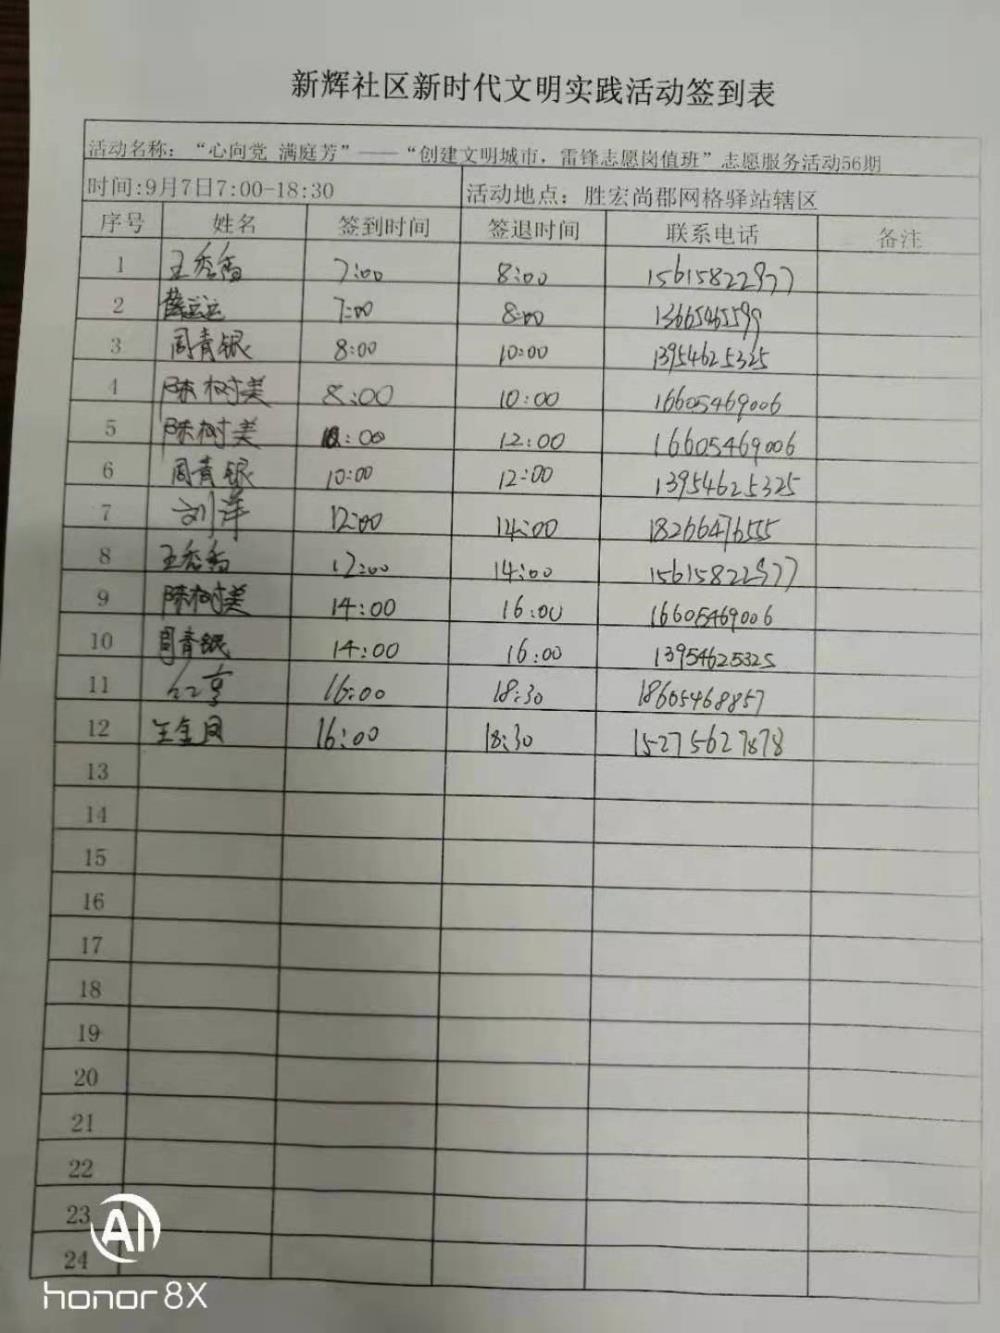 新辉社区新时代文明实践活动签到表
活动名称：“心向党 满庭芳”——“创建文明城市，雷锋志愿岗值班”志愿服务活动56期
时间:9月7日7:00-18:30 活动地点：胜宏尚郡网格驿站辖区
序号 姓名 签到时间 签退时间 联系电话 备注
1 王秀香 7:00 8:00 15615822977
2 薛运运 7:00 8:00 13665465599
3 周青银 8:00 10:00 13954625325
4 陈树美 8:00 10:00 16605469006
5 陈树美 10:00 12:00 16605469006
6 周青银 10:00 12:00 13954625325
7 刘萍 12:00 14:00 18266476555
8 王秀香 12:00 14:00 15615822977
9 陈树美 14:00 16:00 16605469006
10 周青银 14:00 16:00 13954625325
11 16:00 18:30 18605468857
12 王金凤 16:00 18:30 15275627878
13
14
15
16
17
18
19
20
21
22
23
24
AI
honor 8X